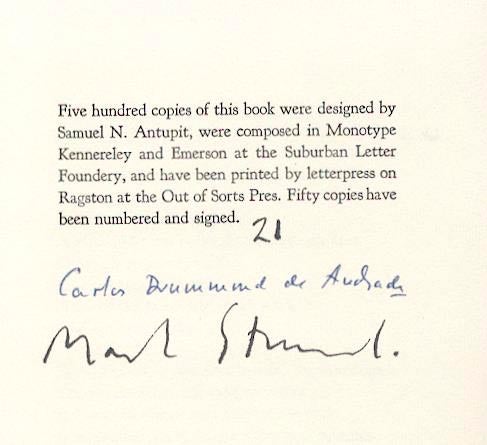 Five hundred copies of this book were designed by
Samuel N. Antupit, were composed in Monotype
Kennereley and Emerson at the Suburban Letter
Foundery, and have been printed by letterpress on
Ragston at the Out of Sorts Pres. Fifty copies have
been numbered and signed.
21
Carlos Drummond de Andrade
Mark Strand.